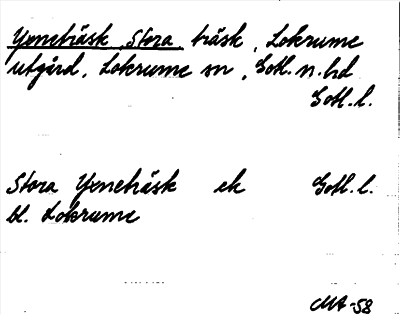 Yxneträsk, Stora, träsk, Lokrume
utgård, Lokrume sn, Gotl. n. hd
Gotl. l.
Stora Yxneträsk ek Gotl. l.
bl. Lokrume
MA-58